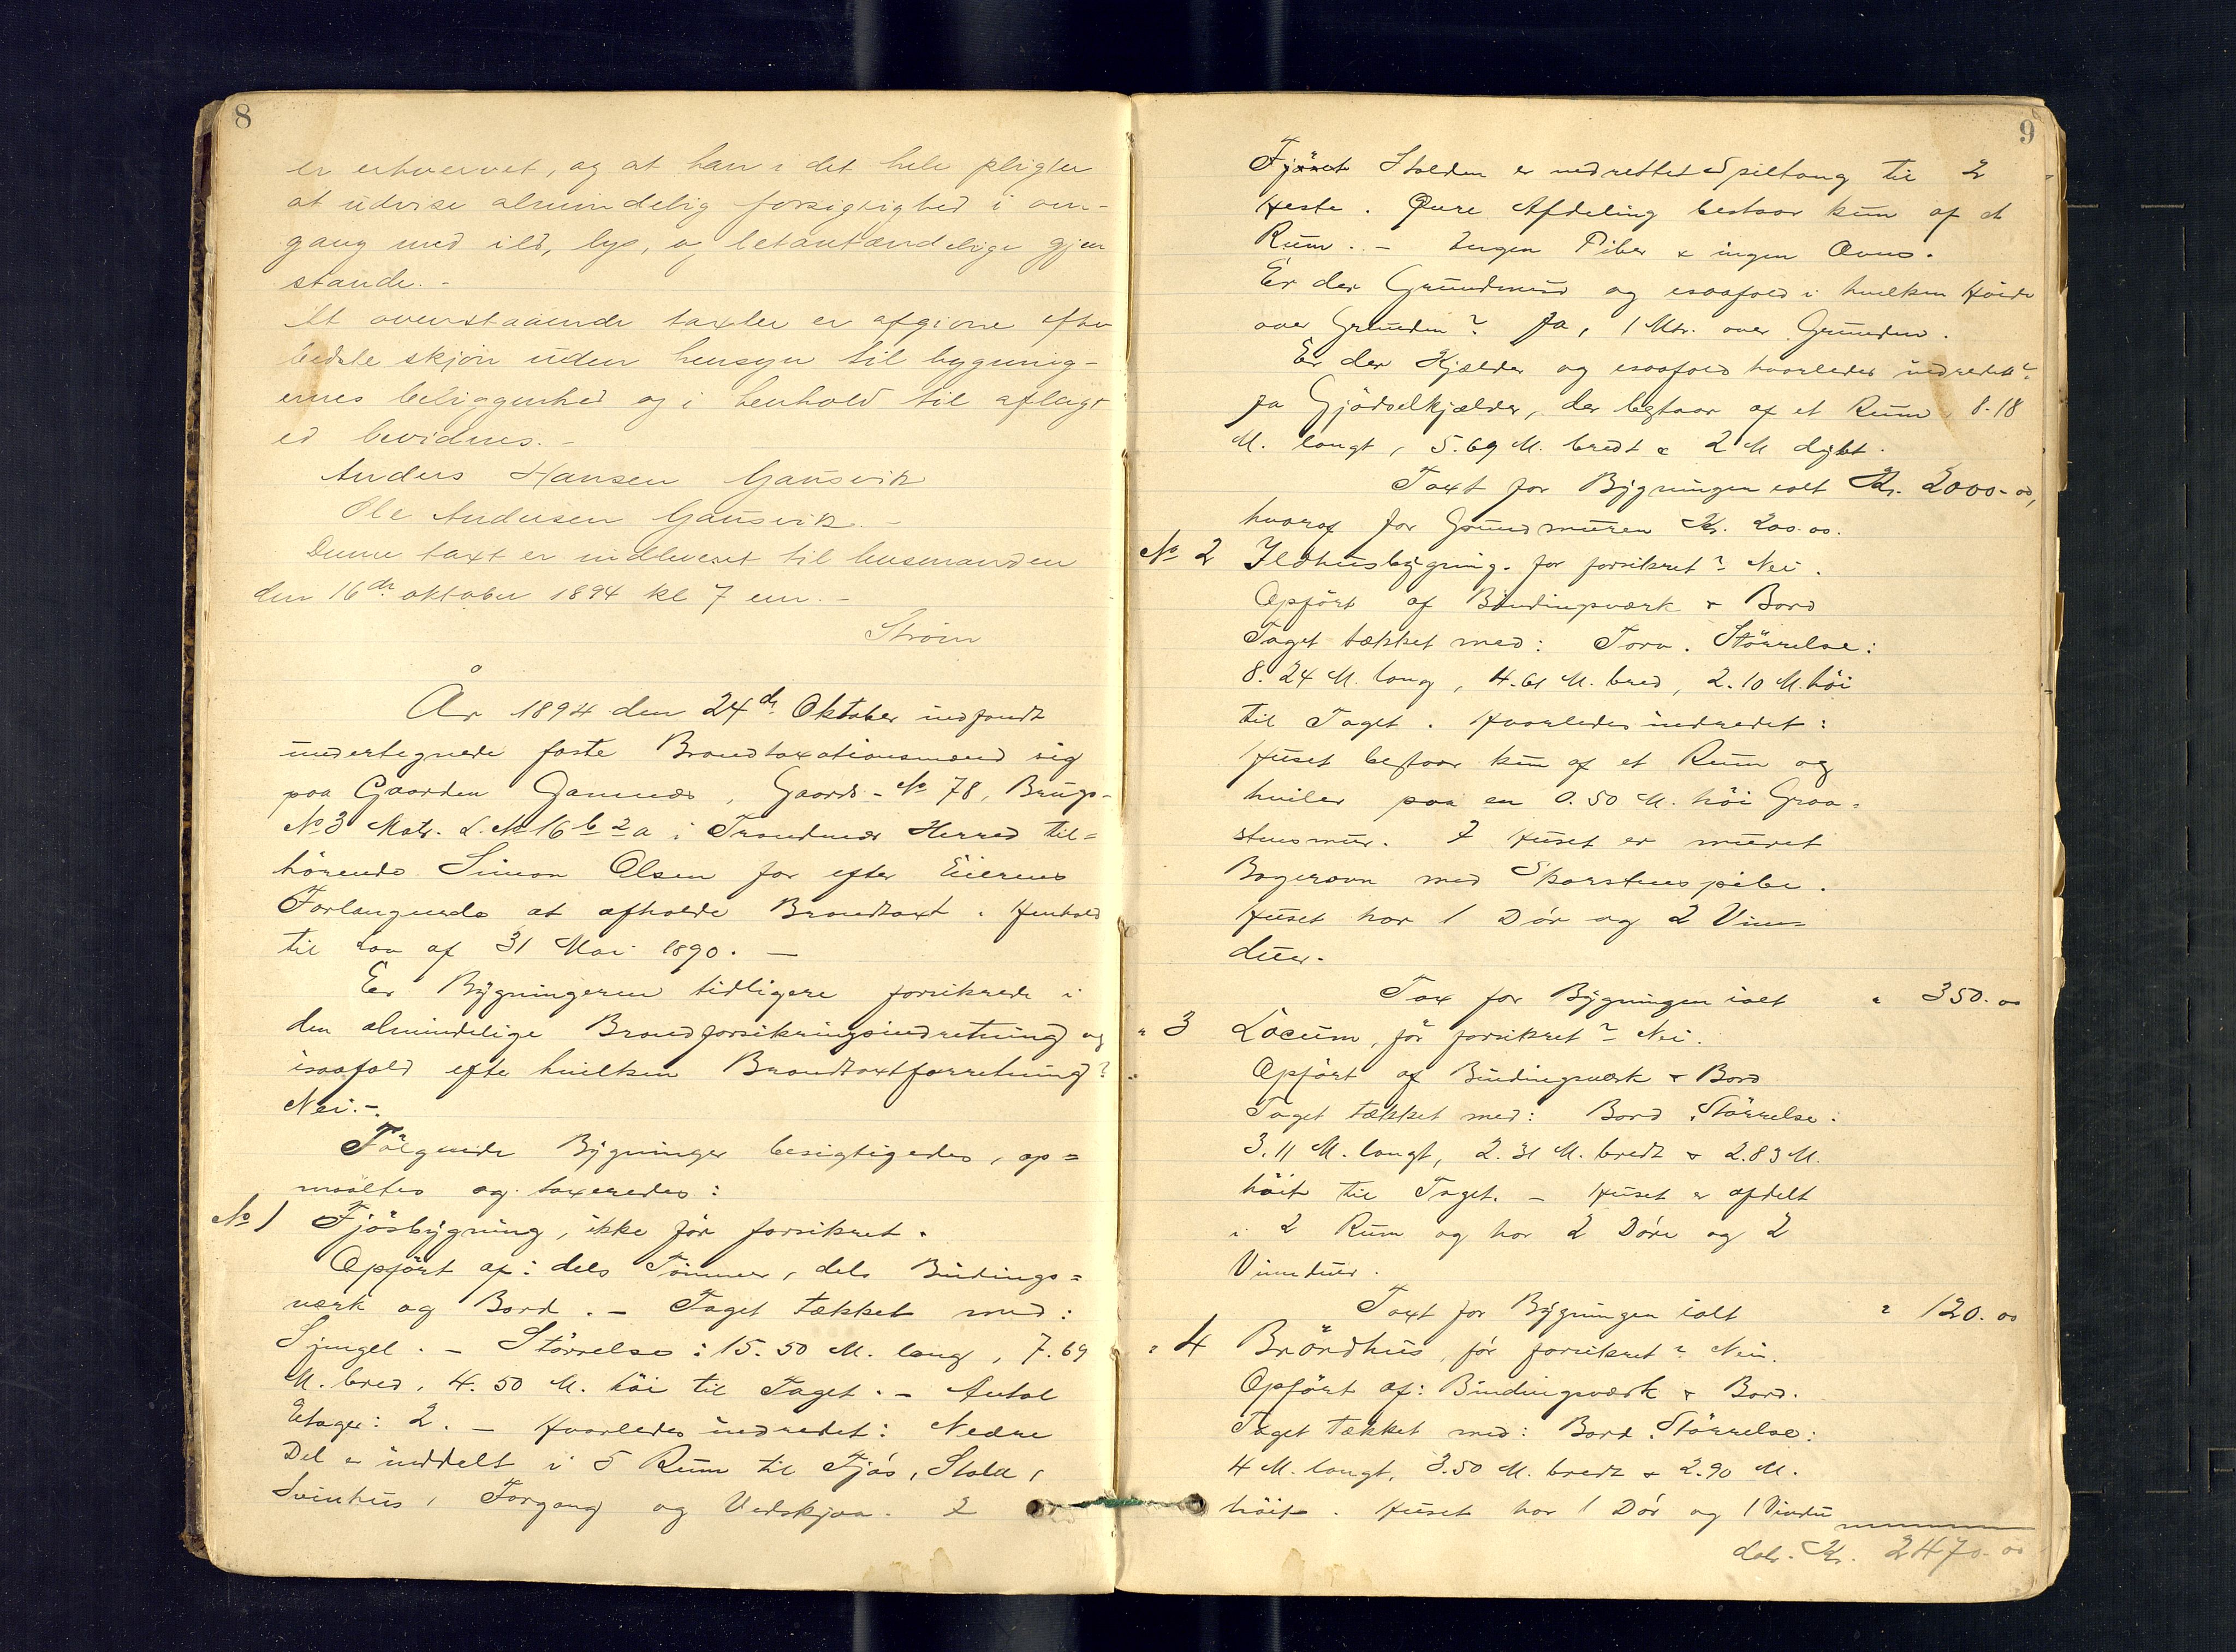 8
er erhvervet, og at han i det hele pligter
at udvise almindelig forsigtighed i om-
gang med ild, lys, og letantændelige gjen
stande. -
At ovenstaaende taxter er afgivne efter
bedste skjøn uden hensyn til bygning-
ernes beliggenhed og i henhold til aflagt
ed bevidnes. -
Anders Hansen Gausvik
Ole Andersen Gausvik. -
Denne taxt er indleveret til lensmanden
den 16de oktober 1894 kl 7 em. -
Strøm
År 1894 den 24de Oktober indfandt
undertegnede faste Brandtaxationsmænd sig
paa Gaarden , Gaards-No 78, Brugs-
No 3 Matr. L. No 16 b 2 a i Trondenæs Herred til=
hörende Simon Olsen for efter Eierens
Forlangende at afholde Brandtaxt i Henhold
til Lov af 31 Mai 1890. -
Er Bygningerne tidligere forsikrede i
den almindelige Brandforsikringsindretning og
isaafald efter hvilken Brandtaxtforretning?
Nei. -
Fölgende Bygninger besigtigedes, op=
maaltes og taxeredes:
No 1 Fjösbygning, ikke för forsikret.
Opfört af: dels Tömmer, dels Bindings=
værk og Bord. - Taget tækket med:
Spingel. - Störrelse: 15.50 M. lang, 7.69
M. bred, 4.50 M. höi til Taget. - Antal
Etager: 2. - Hvorledes indredet: Nedre
Del er inddelt i 5 Rum til Fjös, Stald,
Svinhus, Forgang og Vedskjaa. I
9
Fjöset Stalden er indrettet Spiltaug til 2
Heste. Övre Afdeling bestaar kun af et
Rum. - Ingen Piber & ingen Ovne.
Er der Grundmur og isaafald i hvilken Höide
over Grunden? Ja, 1 Mtr. over Grunden.
Er der Kjælder og isaafald hvorledes indredet?
Ja Gjödselkjælder, der bestaar af et Rum 8.18
M. langt, 5.69 M. bredt & 2 M dybt.
Taxt for Bygningen ialt Kr. 2000.00,
hvoraf for Grundmuren Kr. 200.00.
No 2 Ildhusbygning. för forsikret? Nei.
Opfört af Bindingsværk & Bord
Taget tækket med: Torv. Störrelse:
8.24 M. lang, 4.61 M. bred, 2.10 M. höi
til Taget. Hvorledes indredet:
Huset bestaar kun af et Rum og
hviler paa en 0.50 M. höi Graa=
stensmur. I Huset er muret
Bagerovn med Skorstenspibe.
Huset har 1 Dör og 2 Vin=
duer.
Tax for Bygningen ialt " 350.00
" 3 Locum, för forsikret? Nei.
Opfört af Bindingsværk & Bord
Taget tækket med: Bord. Störrelse:
3.11 M. langt, 2.31 M. bredt & 2.83 M.
höit til Taget. - Huset er afdelt
i 2 Rum og har 2 Döre og 2
Vinduer.
Taxt for Bygningen ialt " 120.00
" 4 Bröndhus, för forsikret? Nei.
Opfört af: Bindingsværk & Bord.
Taget tækket med: Bord. Störrelse:
4 M. langt, 3.50 M. bredt & 2.90 M.
höit. Huset har 1 Dör og 1 Vindu
Kr. 2470.00